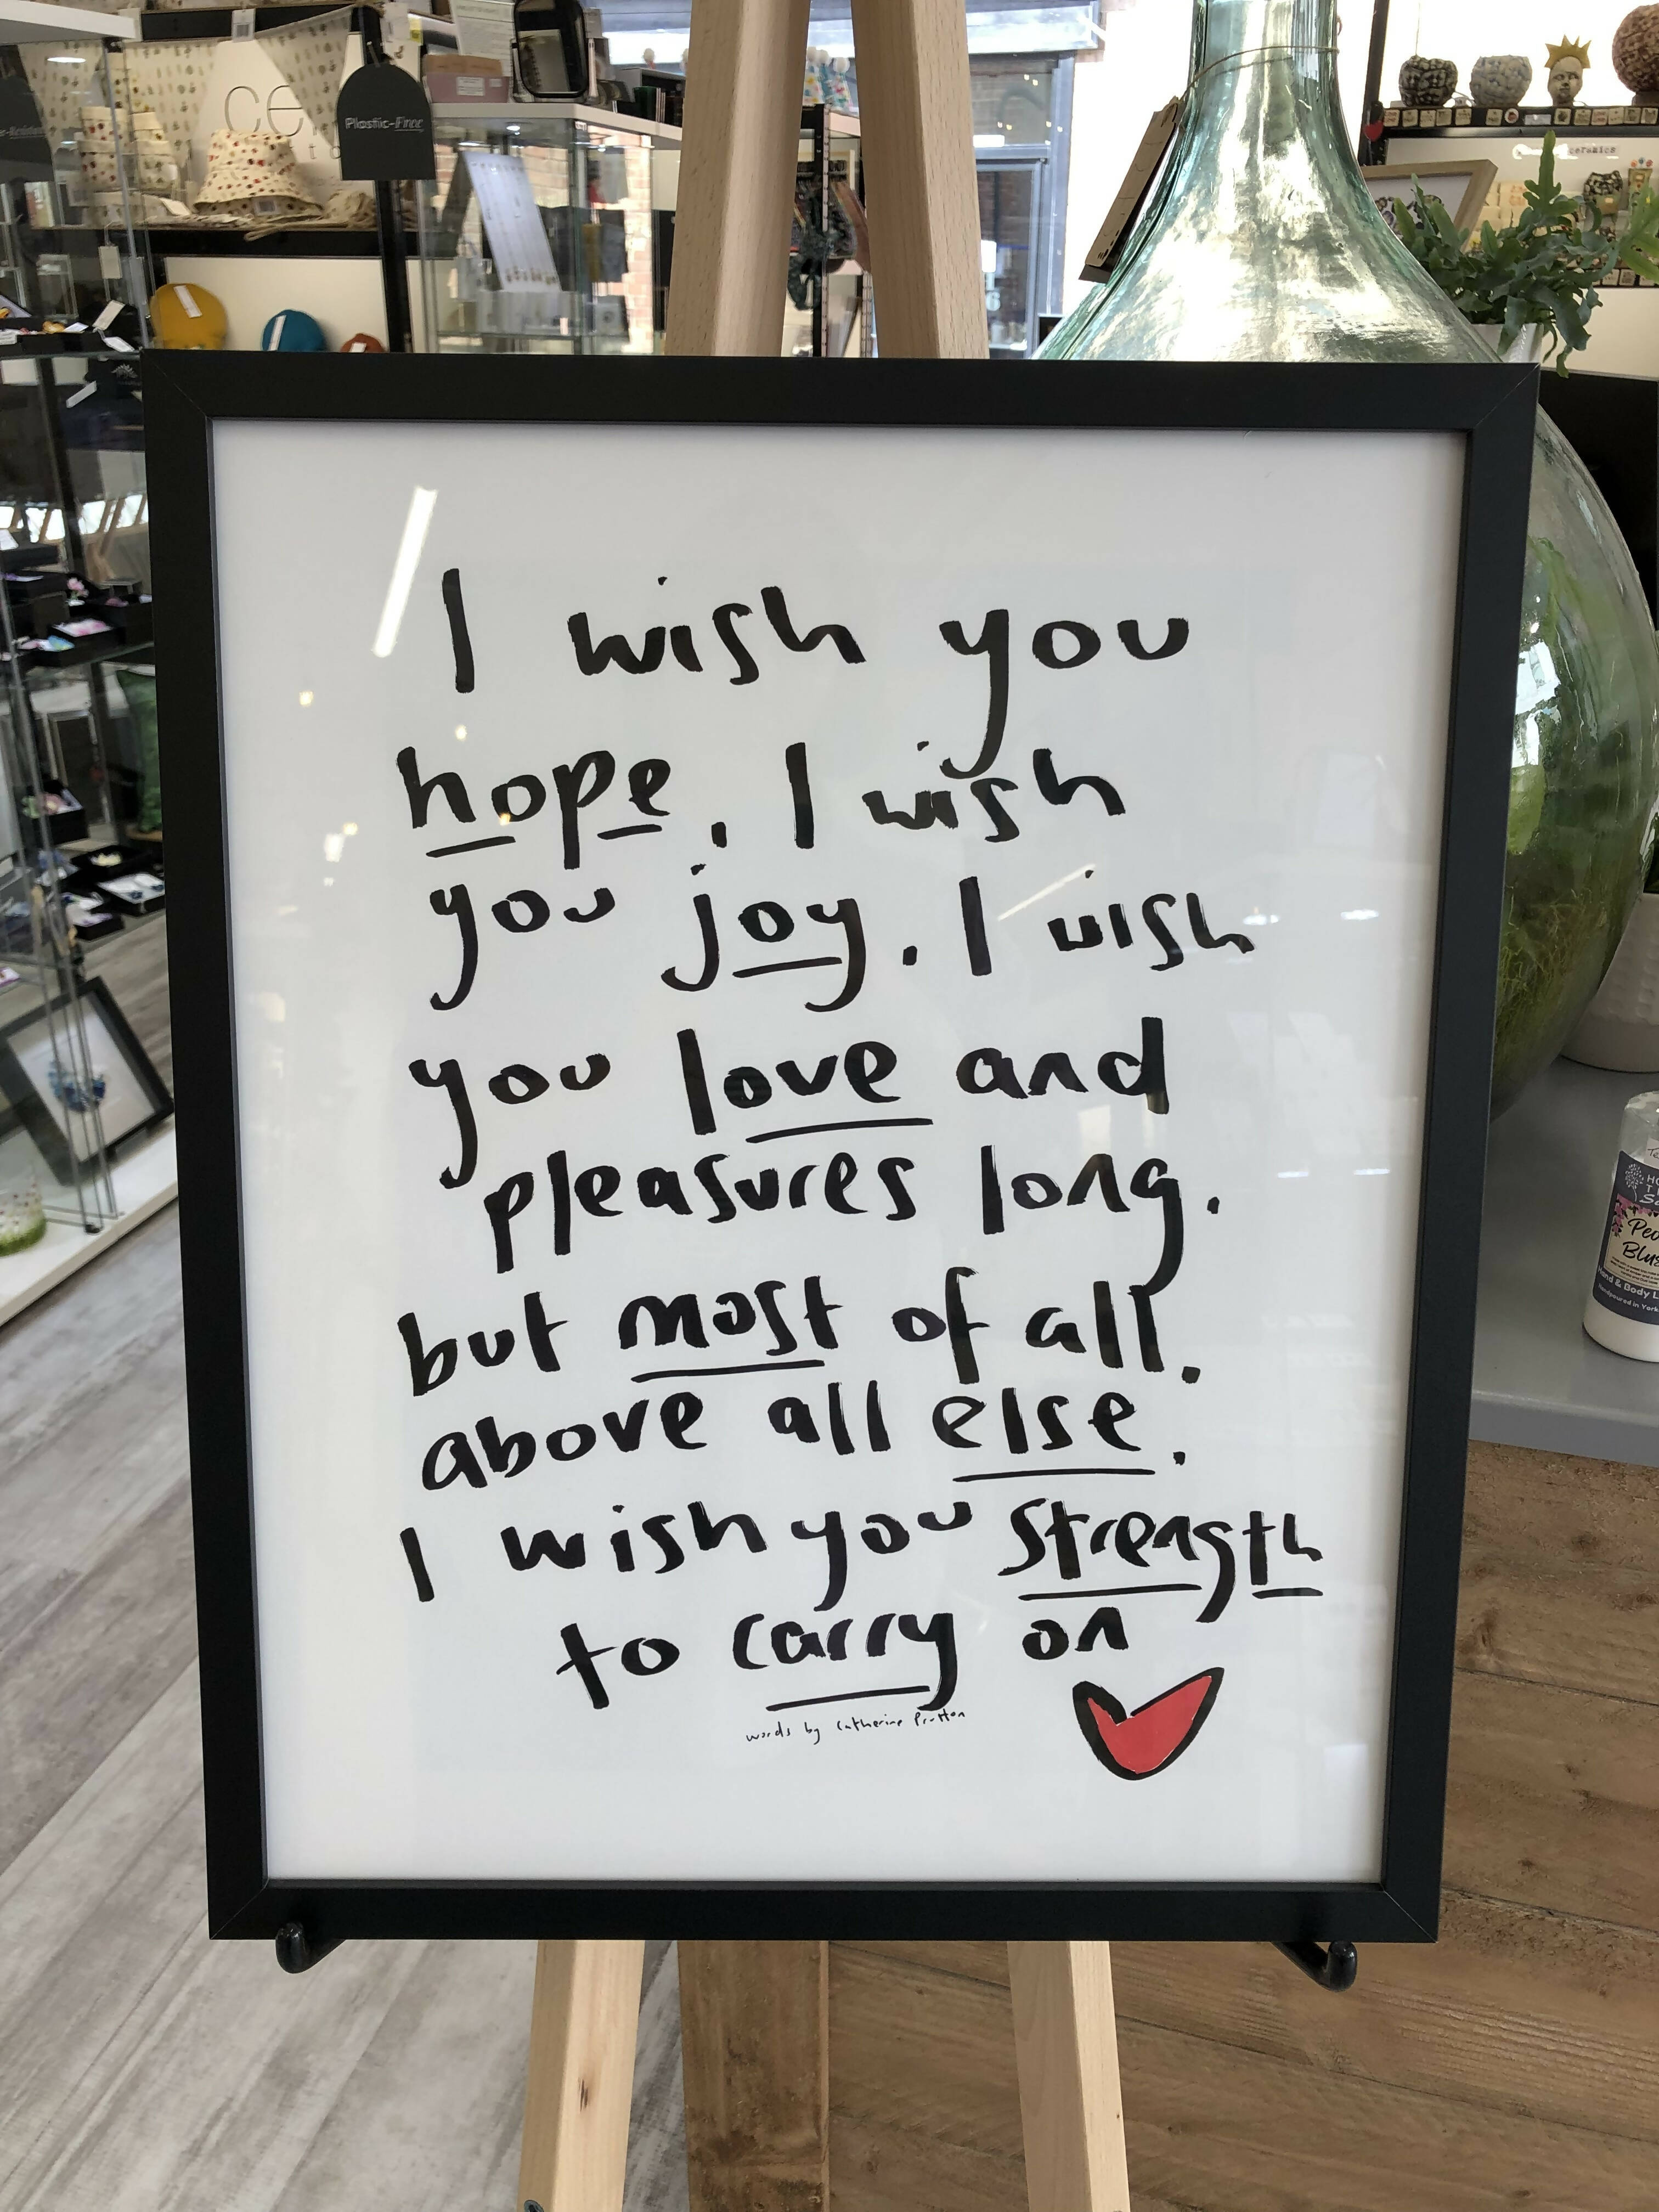 Plastic-Free
ceramics
I wish you
hope. I wish
you joy. I wish
you love and
pleasures long.
but most of all.
above all else.
I wish you strength
to carry on
words by Catherine Prutton
Hand & Body
Handpoured in